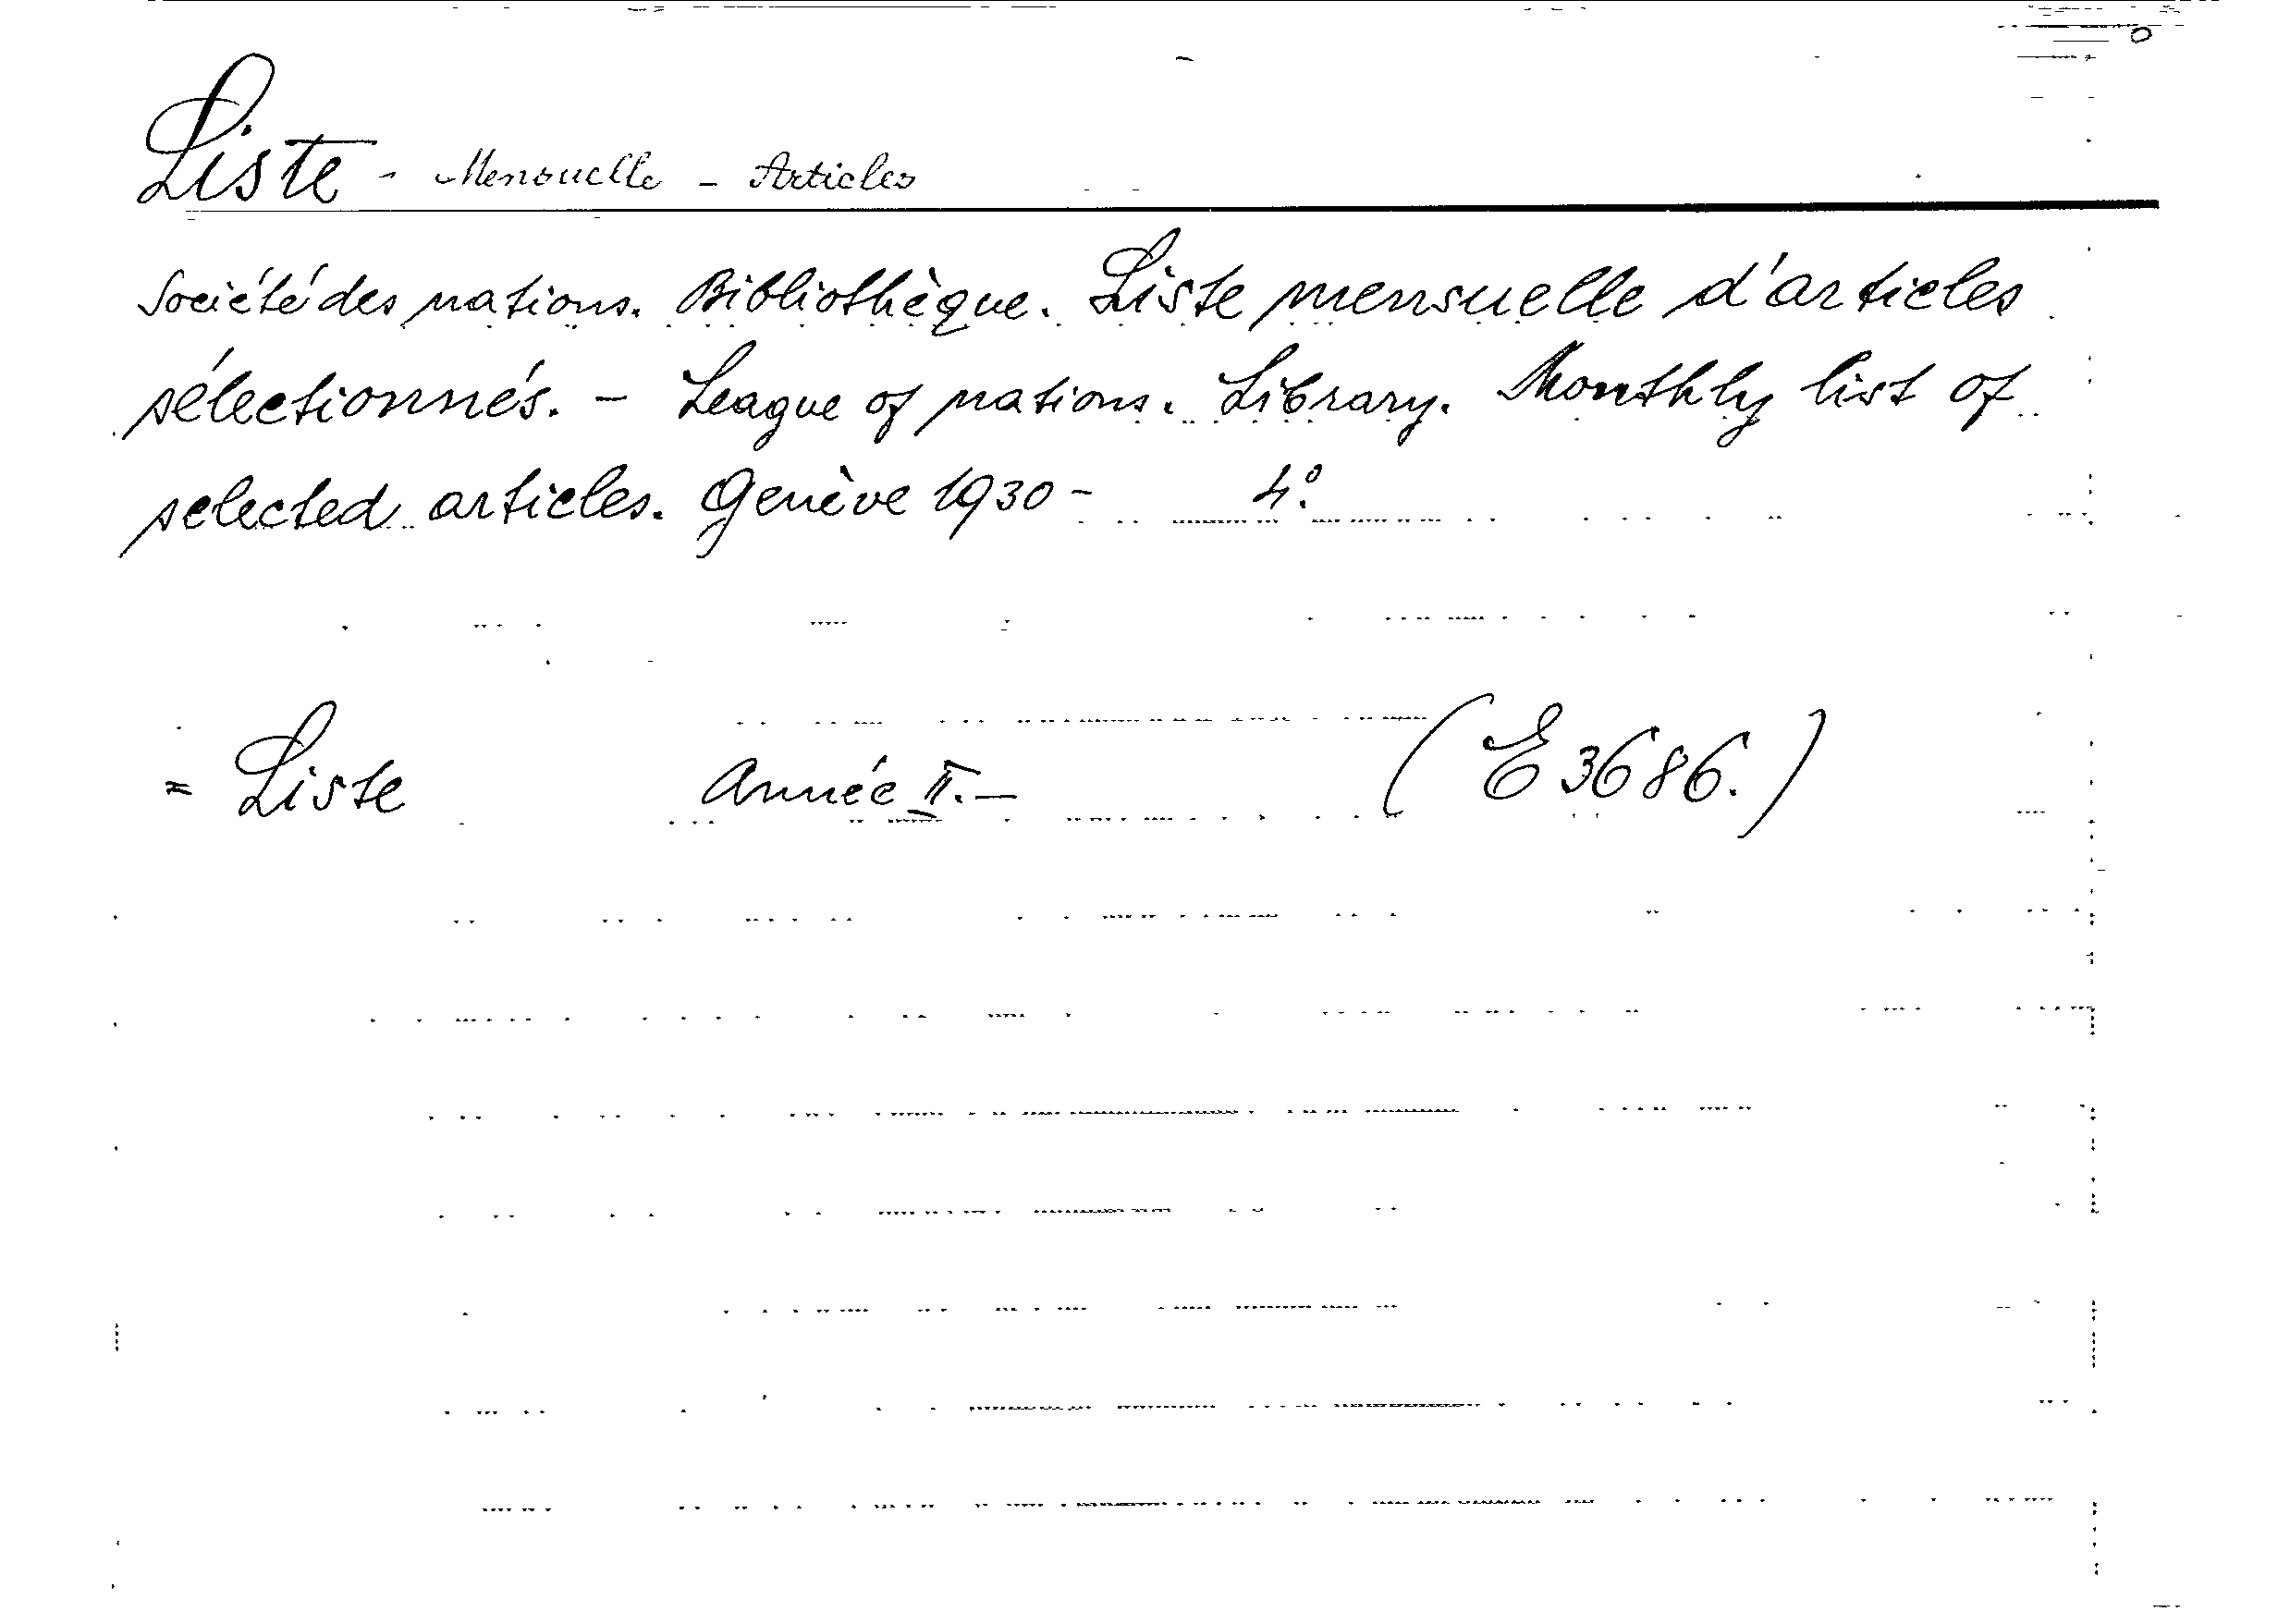 Liste - Mensuelle - Articles
Société des nations. Bibliothèque. Liste mensuelle d'articles
sélectionnés. - League of nations. Library. Monthly list of
selected articles. Genève 1930 - 4º.
= Liste Année II. - (E 3686.)